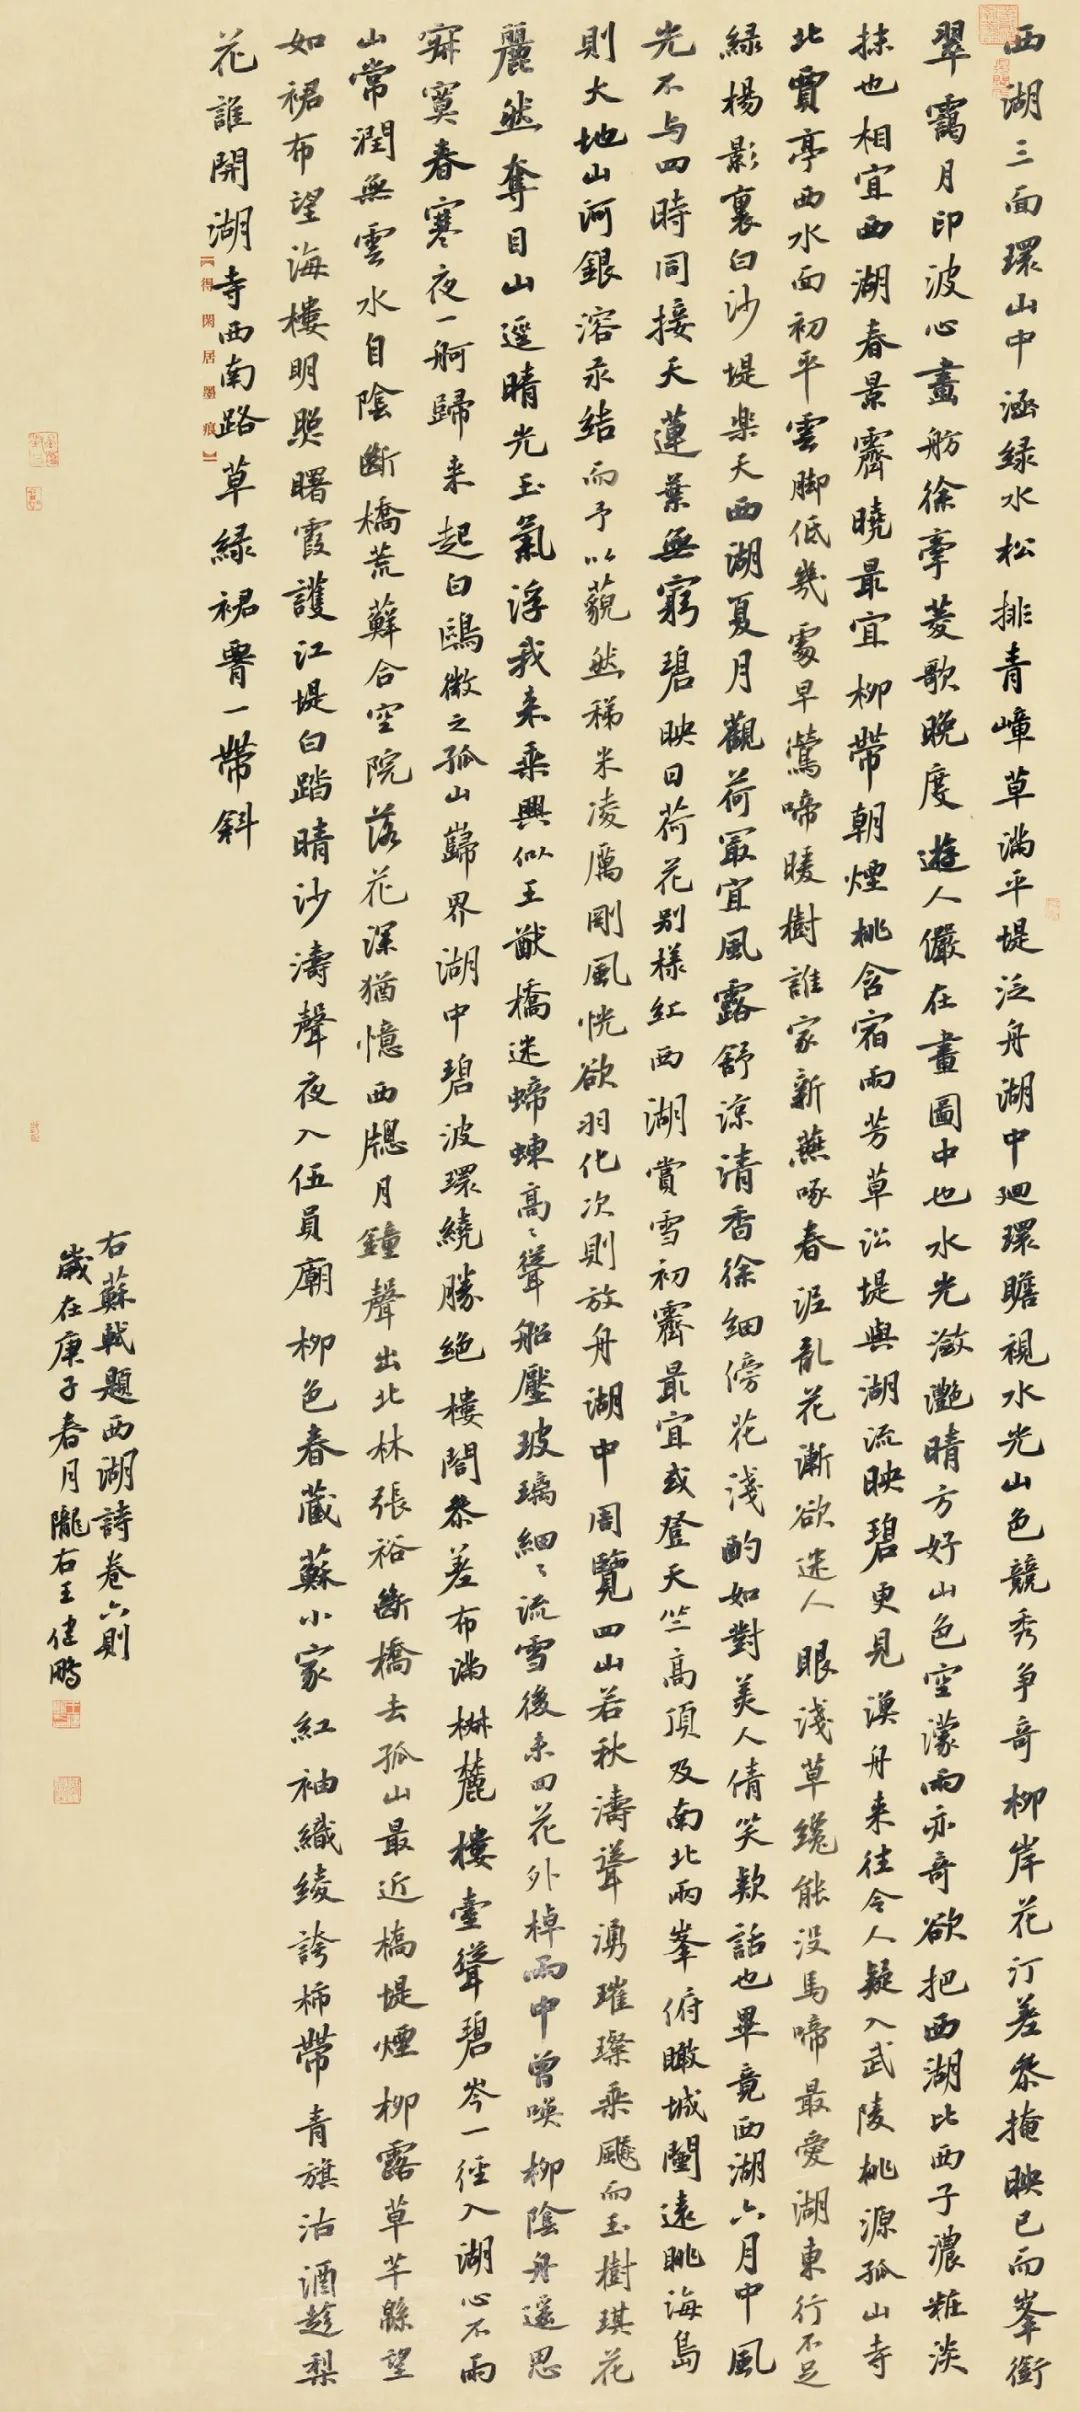 西湖三面環山中涵緑水松排青嶂草滿平堤泛舟湖中廻環瞻視水光山色競秀爭奇柳岸花汀差參掩映已而峯銜
翠靄月印波心畫舫徐牽菱歌晚度遊人儼在畫圖中也水光瀲灧晴方好山色空濛雨亦奇欲把西湖比西子濃粧淡
抹也相宜西湖春景霽曉最宜柳帶朝煙桃含宿雨芳草沿堤與湖流映碧更見漁舟来往令人疑入武陵桃源孤山寺
北賈亭西水面初平雲脚低幾處早鶯啼暖樹誰家新燕啄春泥亂花漸欲迷人眼淺草纔能没馬啼最愛湖東行不足
緑楊影裏白沙堤樂天西湖夏月觀荷最宜風露舒涼清香徐細傍花淺酌如對美人倩笑欵話也畢竟西湖六月中風
光不与四時同接天蓮葉無窮碧映日荷花别樣紅西湖賞雪初霽最宜或登天竺高頂及南北兩峯俯瞰城闉遠眺海島
則大地山河銀溶汞結而予以藐然稊米凌厲剛風恍欲羽化次則放舟湖中周覽四山若秋濤聳湧璀璨乘飈而玉樹琪花
麗然奪目山逕晴光玉氣浮我来乘興似王猷橋迷蝃蝀高〻聳船壓玻璃細〻流雪後来回花外棹雨中曾喚柳陰舟遥思
寂寞春寒夜一舸歸来起白鷗微之孤山巋界湖中碧波環繞勝絶樓閣叅差布滿椒麓樓臺聳碧岑一徑入湖心不雨
山常潤無雲水自陰斷橋荒蘚合空院落花深猶憶西牕月鐘聲出北林張祜斷橋去孤山最近橋堤煙柳露草芊緜望
如裙布望海樓明照曙霞護江堤白踏晴沙濤聲夜入伍員廟柳色春藏蘇小家紅袖織綾誇柿帶青旗沽酒趁梨
花誰開湖寺西南路草緑裙腎一帶斜
【得閑居墨痕】
右蘇軾題西湖詩卷六則
歲在庚子春月隴右王健鵬